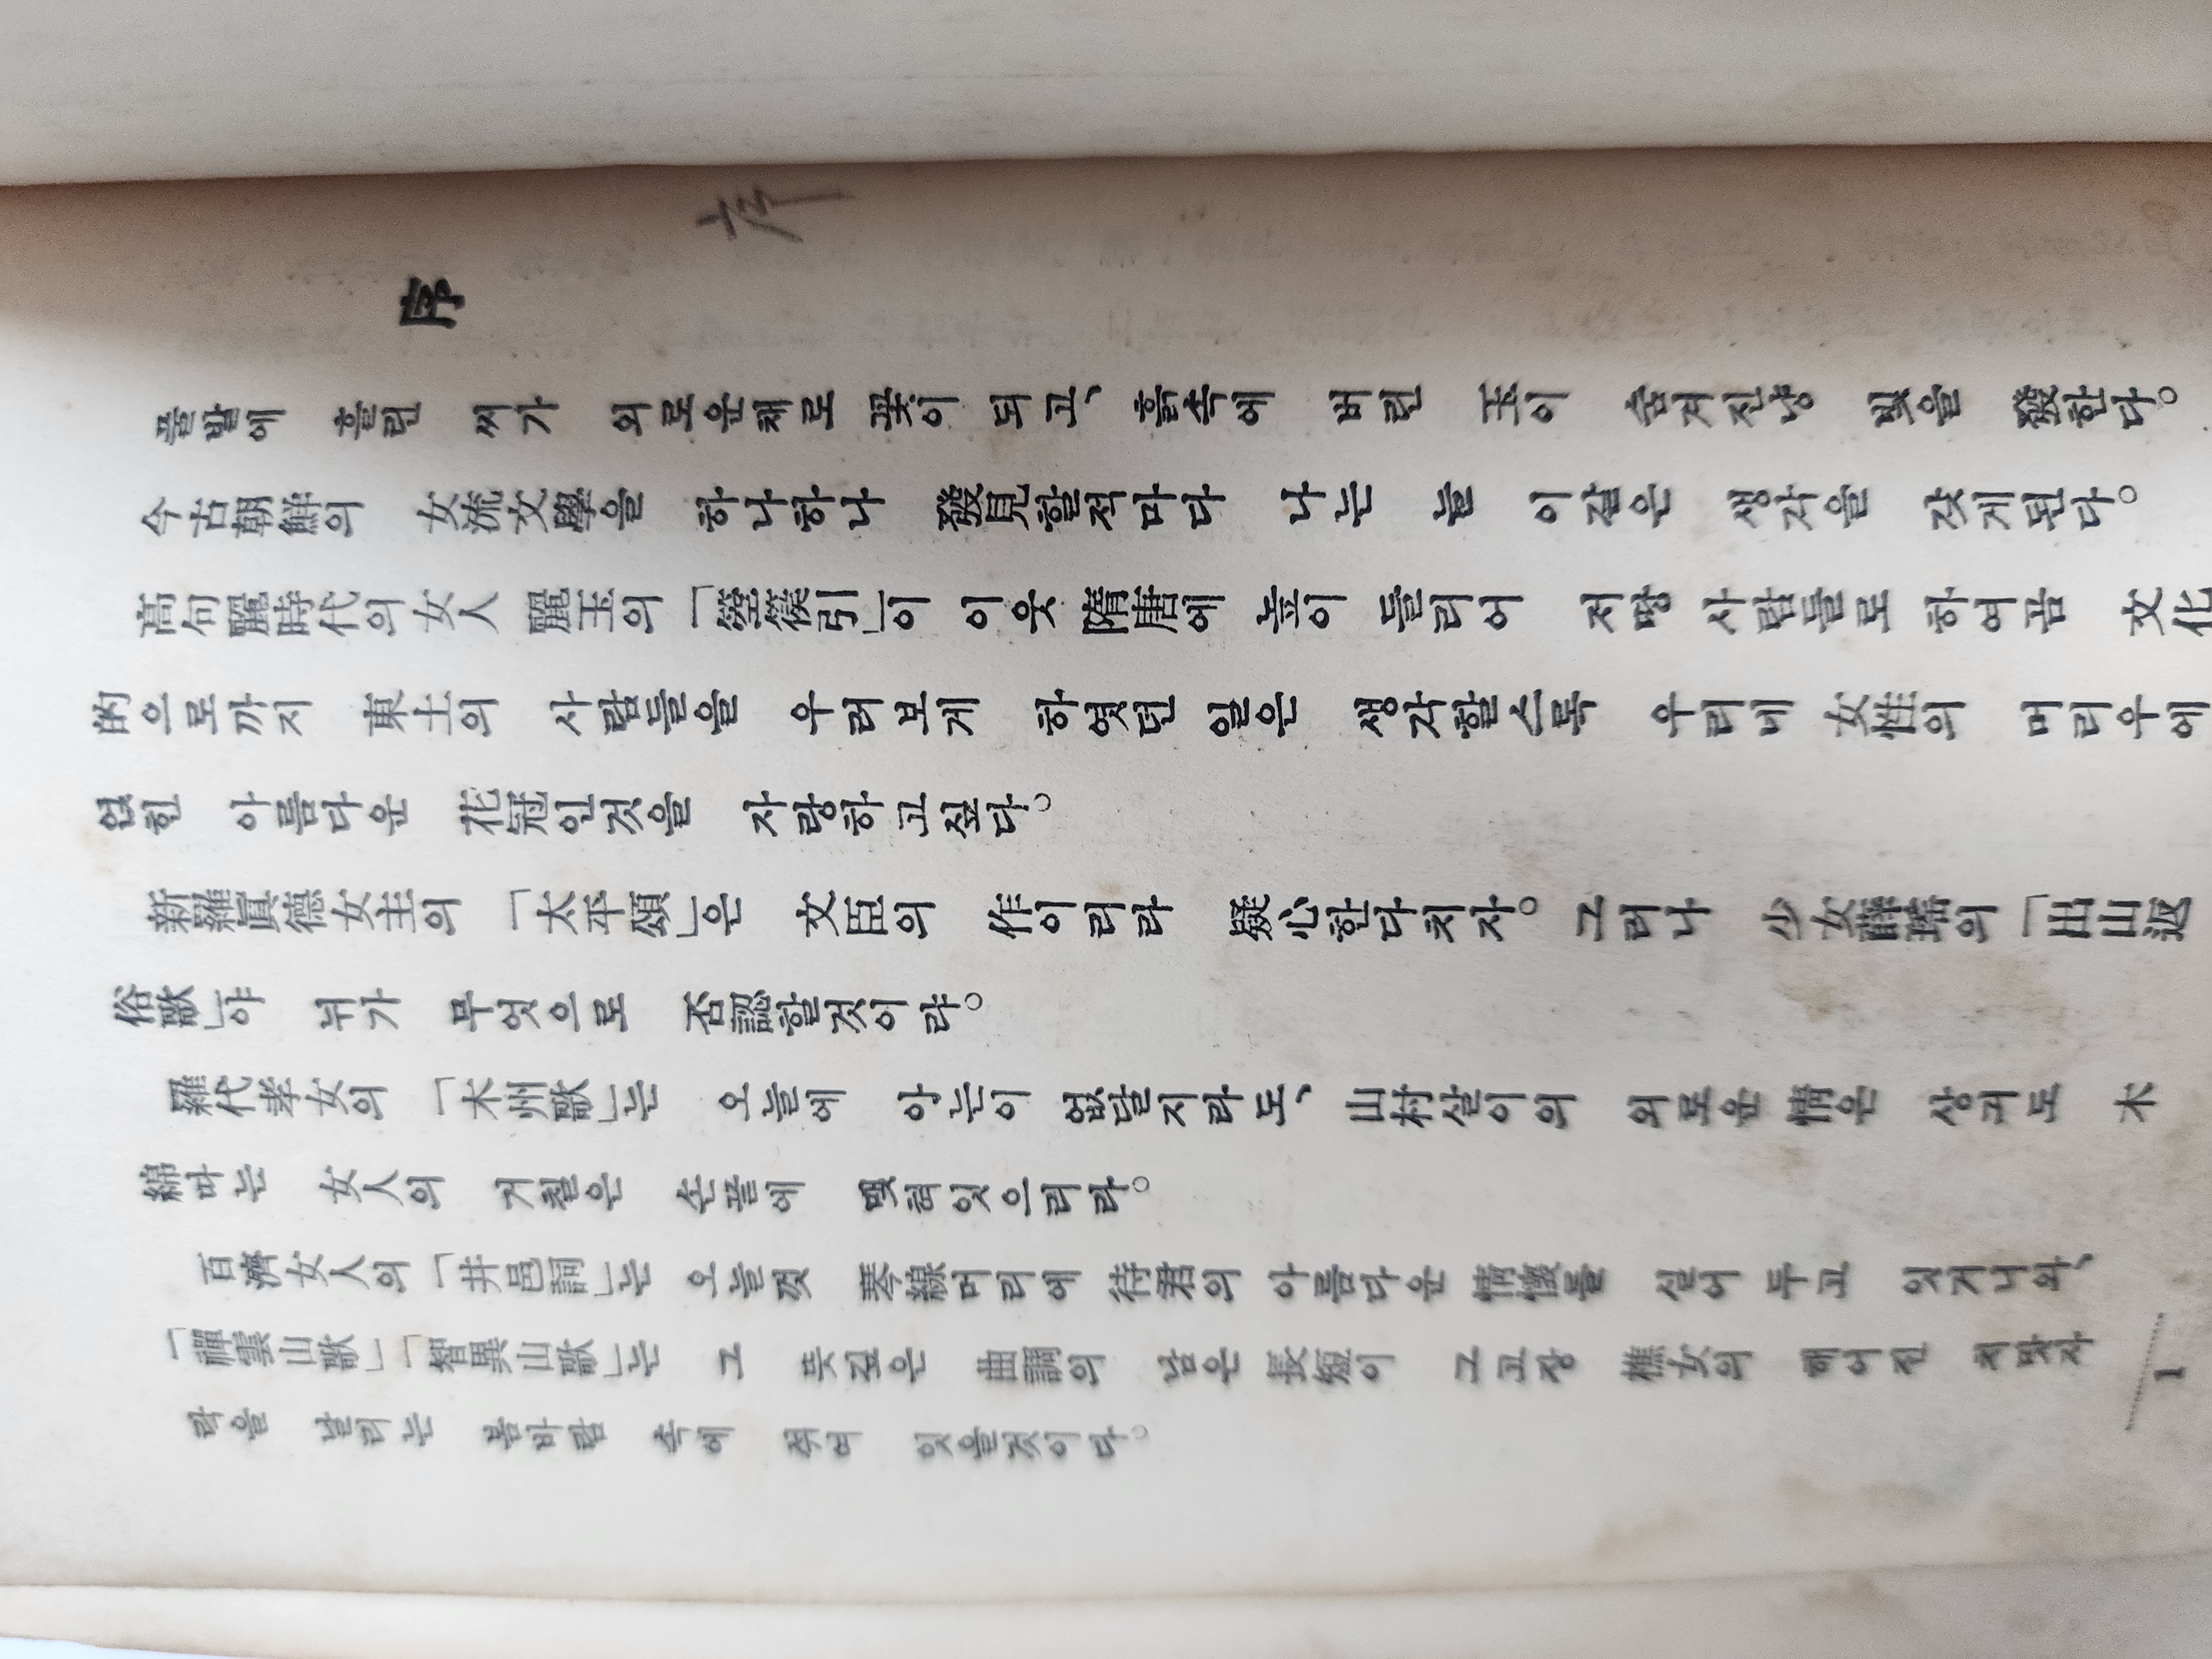 序
풀밭에 흘린 씨가 외로운채로 꽃이 되고、흙속에 버린 玉이 숨겨진냥 빛을 發한다。
今古朝鮮의 女流文學을 하나하나 發見할적마다 나는 늘 이같은 생각을 갖게된다。
高句麗時代의 女人 麗玉의 「箜篌引」이 이웃 隋唐에 높이 들리어 저땅 사람들로 하여곰 文化
的으로까지 東土의 사람들을 우러보게 하엿던 일은 생각할스록 우리네 女性의 머리우에
얹힌 아름다운 花冠인것을 자랑하고싶다。
新羅眞德女主의 「太平頌」은 文臣의 作이리라 疑心한다치자。그러나 少女薛瑤의 「出山返
俗歌」야 뉘가 무엇으로 否認할것이랴。
羅代孝女의 「木州歌」는 오늘에 아는이 없달지라도、山村살이의 외로운 情은 상긔도 木
綿따는 女人의 거츨은 손끝에 맺혀잇으리라。
百濟女人의 「井邑詞」는 오늘껏 琴線머리에 待君의 아름다운 情懷를 실어 두고 잇거니와、
「禪雲山歌」「智異山歌」는 그 뜻깊은 曲調의 남은 長短이 그고장 樵女의 해어진 치맛자
락을 날리는 봄바람 속에 석여 잇을것이다。
1